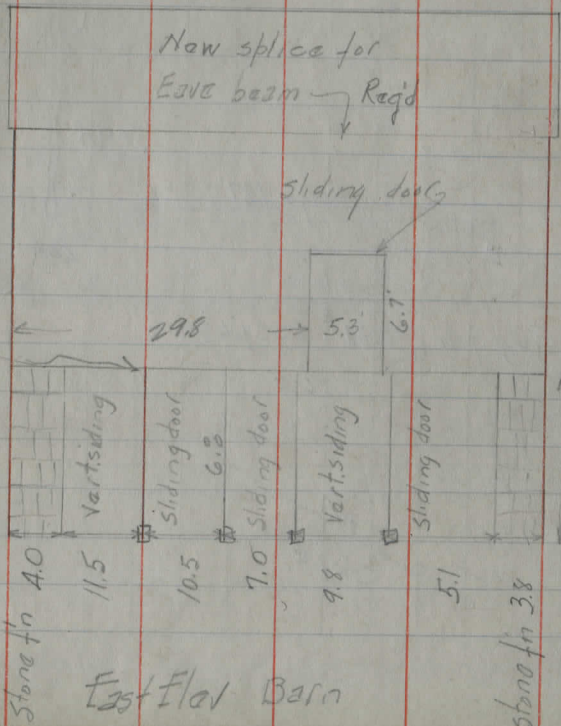 New splice for
Eave beam Req'd
Sliding door
29.8
5.3
6.7'
Vert.siding
Sliding door
6.8
Sliding door
Vert.siding
Sliding door
Stone f'n 4.0
11.5
10.5
7.0
9.8
5.1
Stone f'n 3.8
East Elev Barn